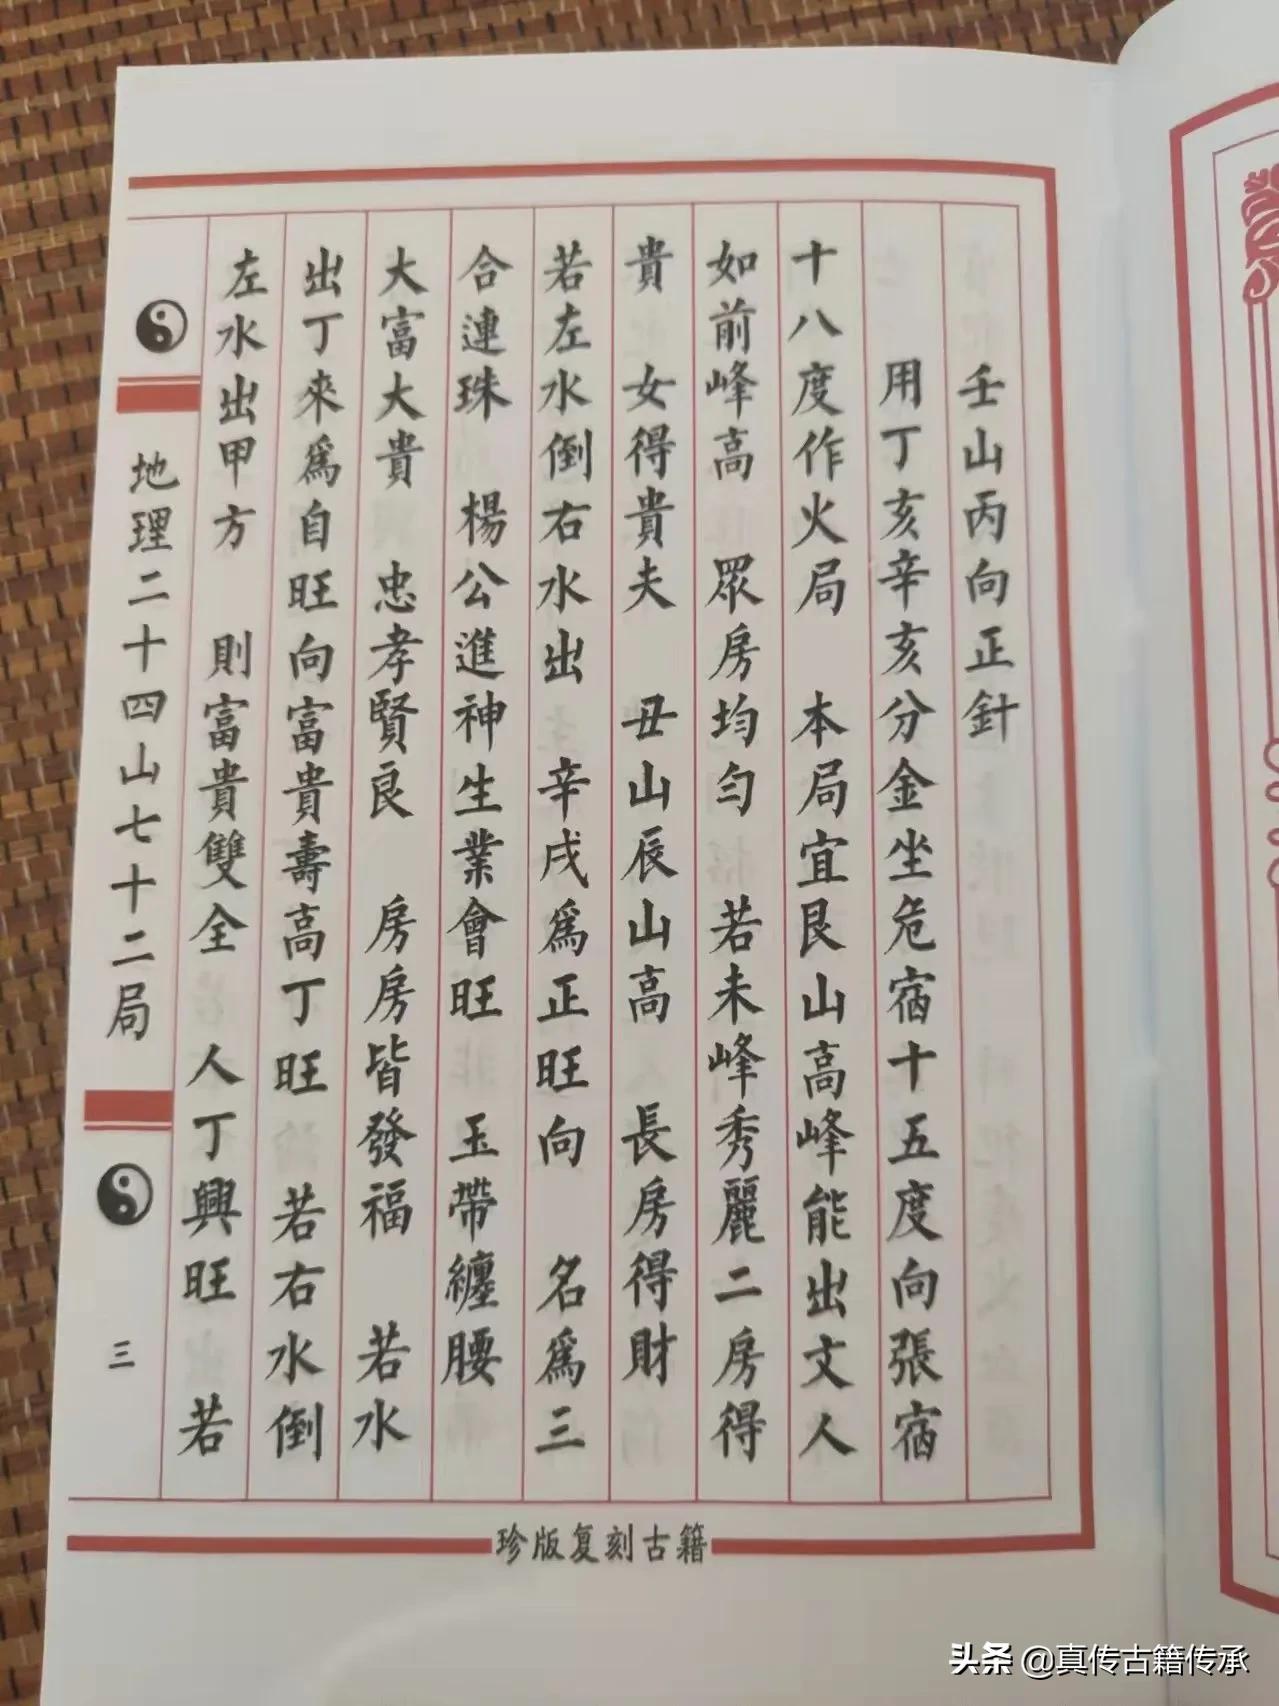 壬山丙向正針
用丁亥辛亥分金坐危宿十五度向張宿
十八度作火局　本局宜艮山高峰能出文人
如前峰高　眾房均勻　若未峰秀麗二房得
貴　女得貴夫　丑山辰山高　長房得財
若左水倒右水出　辛戌為正旺向　名為三
合連珠　楊公進神生業會旺　玉帶纏腰
大富大貴　忠孝賢良　房房皆發福　若水
出丁來為自旺向富貴壽高丁旺　若右水倒
左水出甲方　則富貴雙全　人丁興旺　若
地理二十四山七十二局
三
珍版复刻古籍
头条 @真传古籍传承